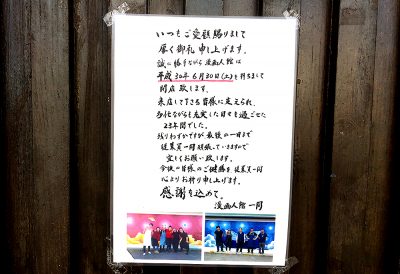 いつもご愛顧賜りまして
厚く御礼申し上げます。
誠に勝手ながら漫画人館は
平成30年6月30日(土)を持ちまして
閉店致します。
来店して下さる皆様に支えられ、
多忙ながらも充実した日々を過ごせた
23年間でした。
残りわずかですが最後の一日まで
従業員一同頑張っていきますので
宜しくお願い致します。
今後の皆様のご健勝を従業員一同
心よりお祈り申し上げます。
感謝を込めて。
漫画人館一同